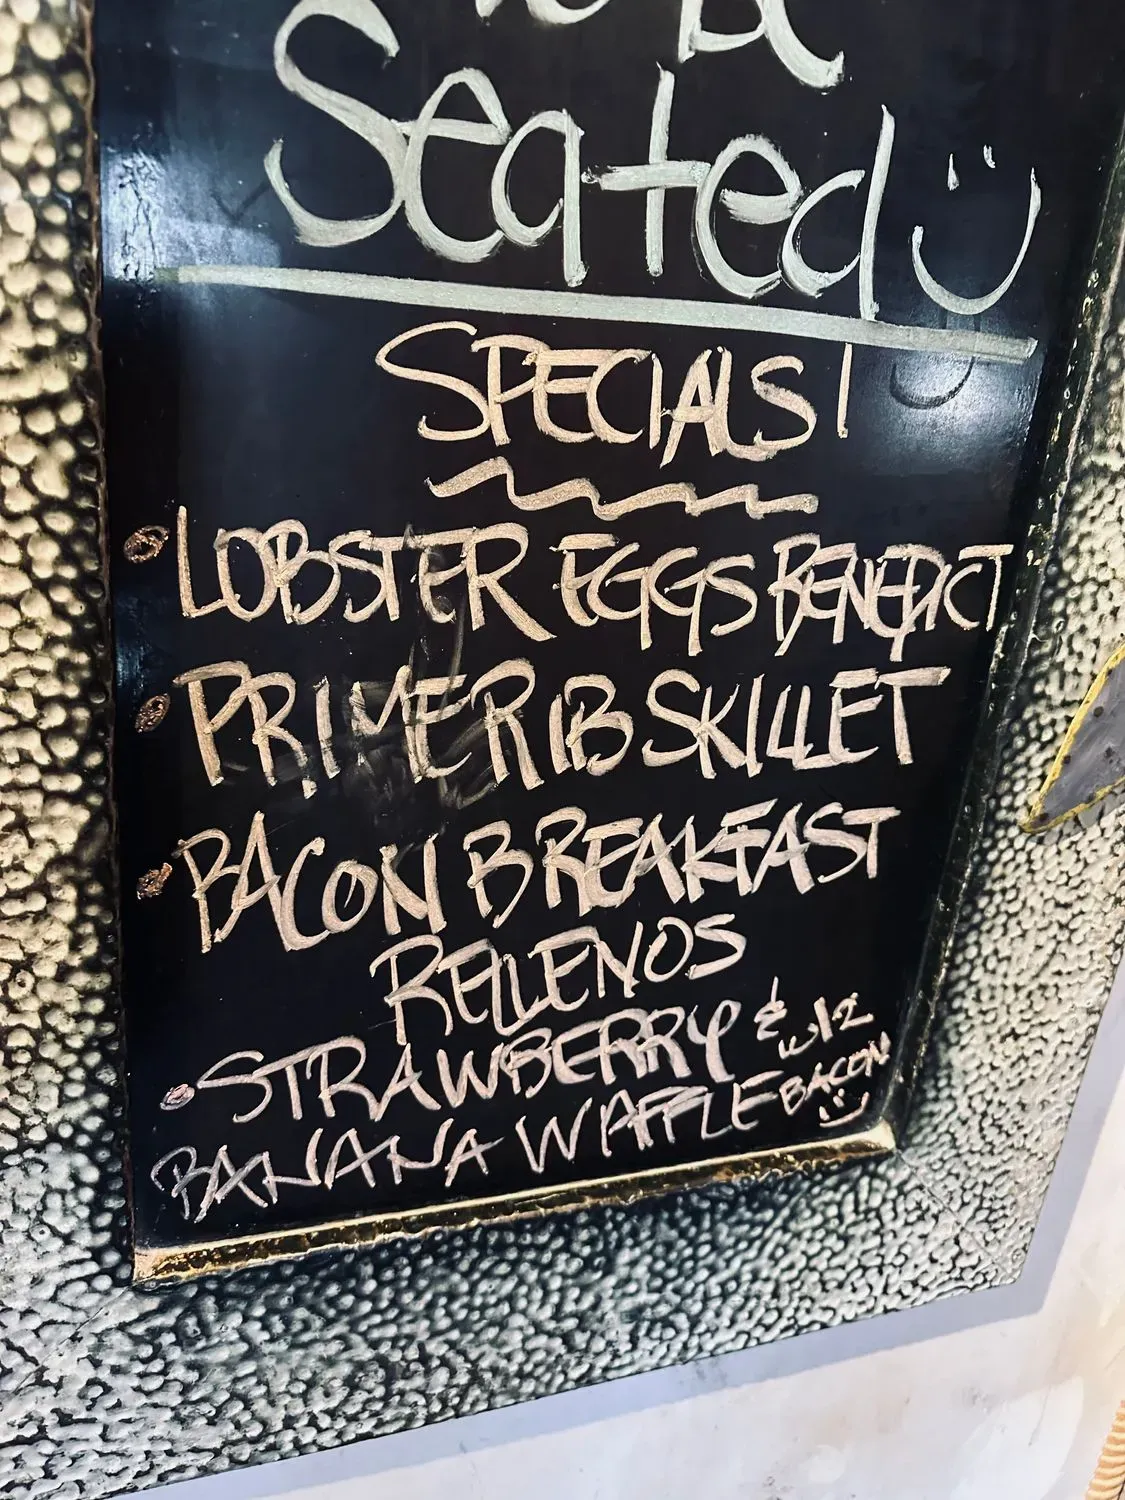 Seated
SPECIALS!
• LOBSTER EGGS BENEDICT
• PRIME RIB SKILLET
• BACON BREAKFAST
RELENOS
• STRAWBERRY &
BANANA WAFFLE
w/2
BACON